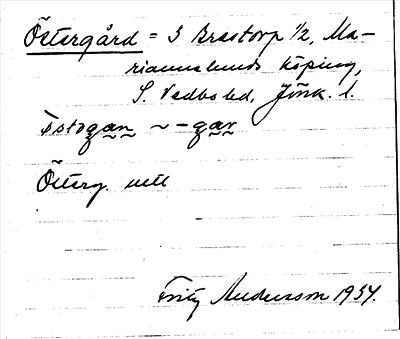 Östergård = 3 Brastorp 1/2, Ma-
riannelunds köping,
S. Vedbo hd, Jönk. l.
östogan ~ -gar
Österg. nett
Fritz Andersson 1934.